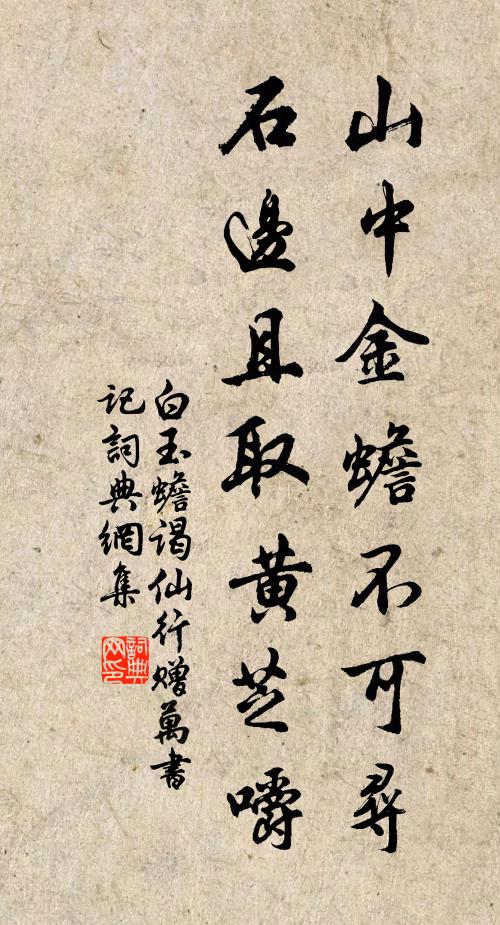 山中金蟾不可尋
石邊且取黄芝嚼
白玉蟾謁仙行贈萬書
記詞典網集
詞典
网印